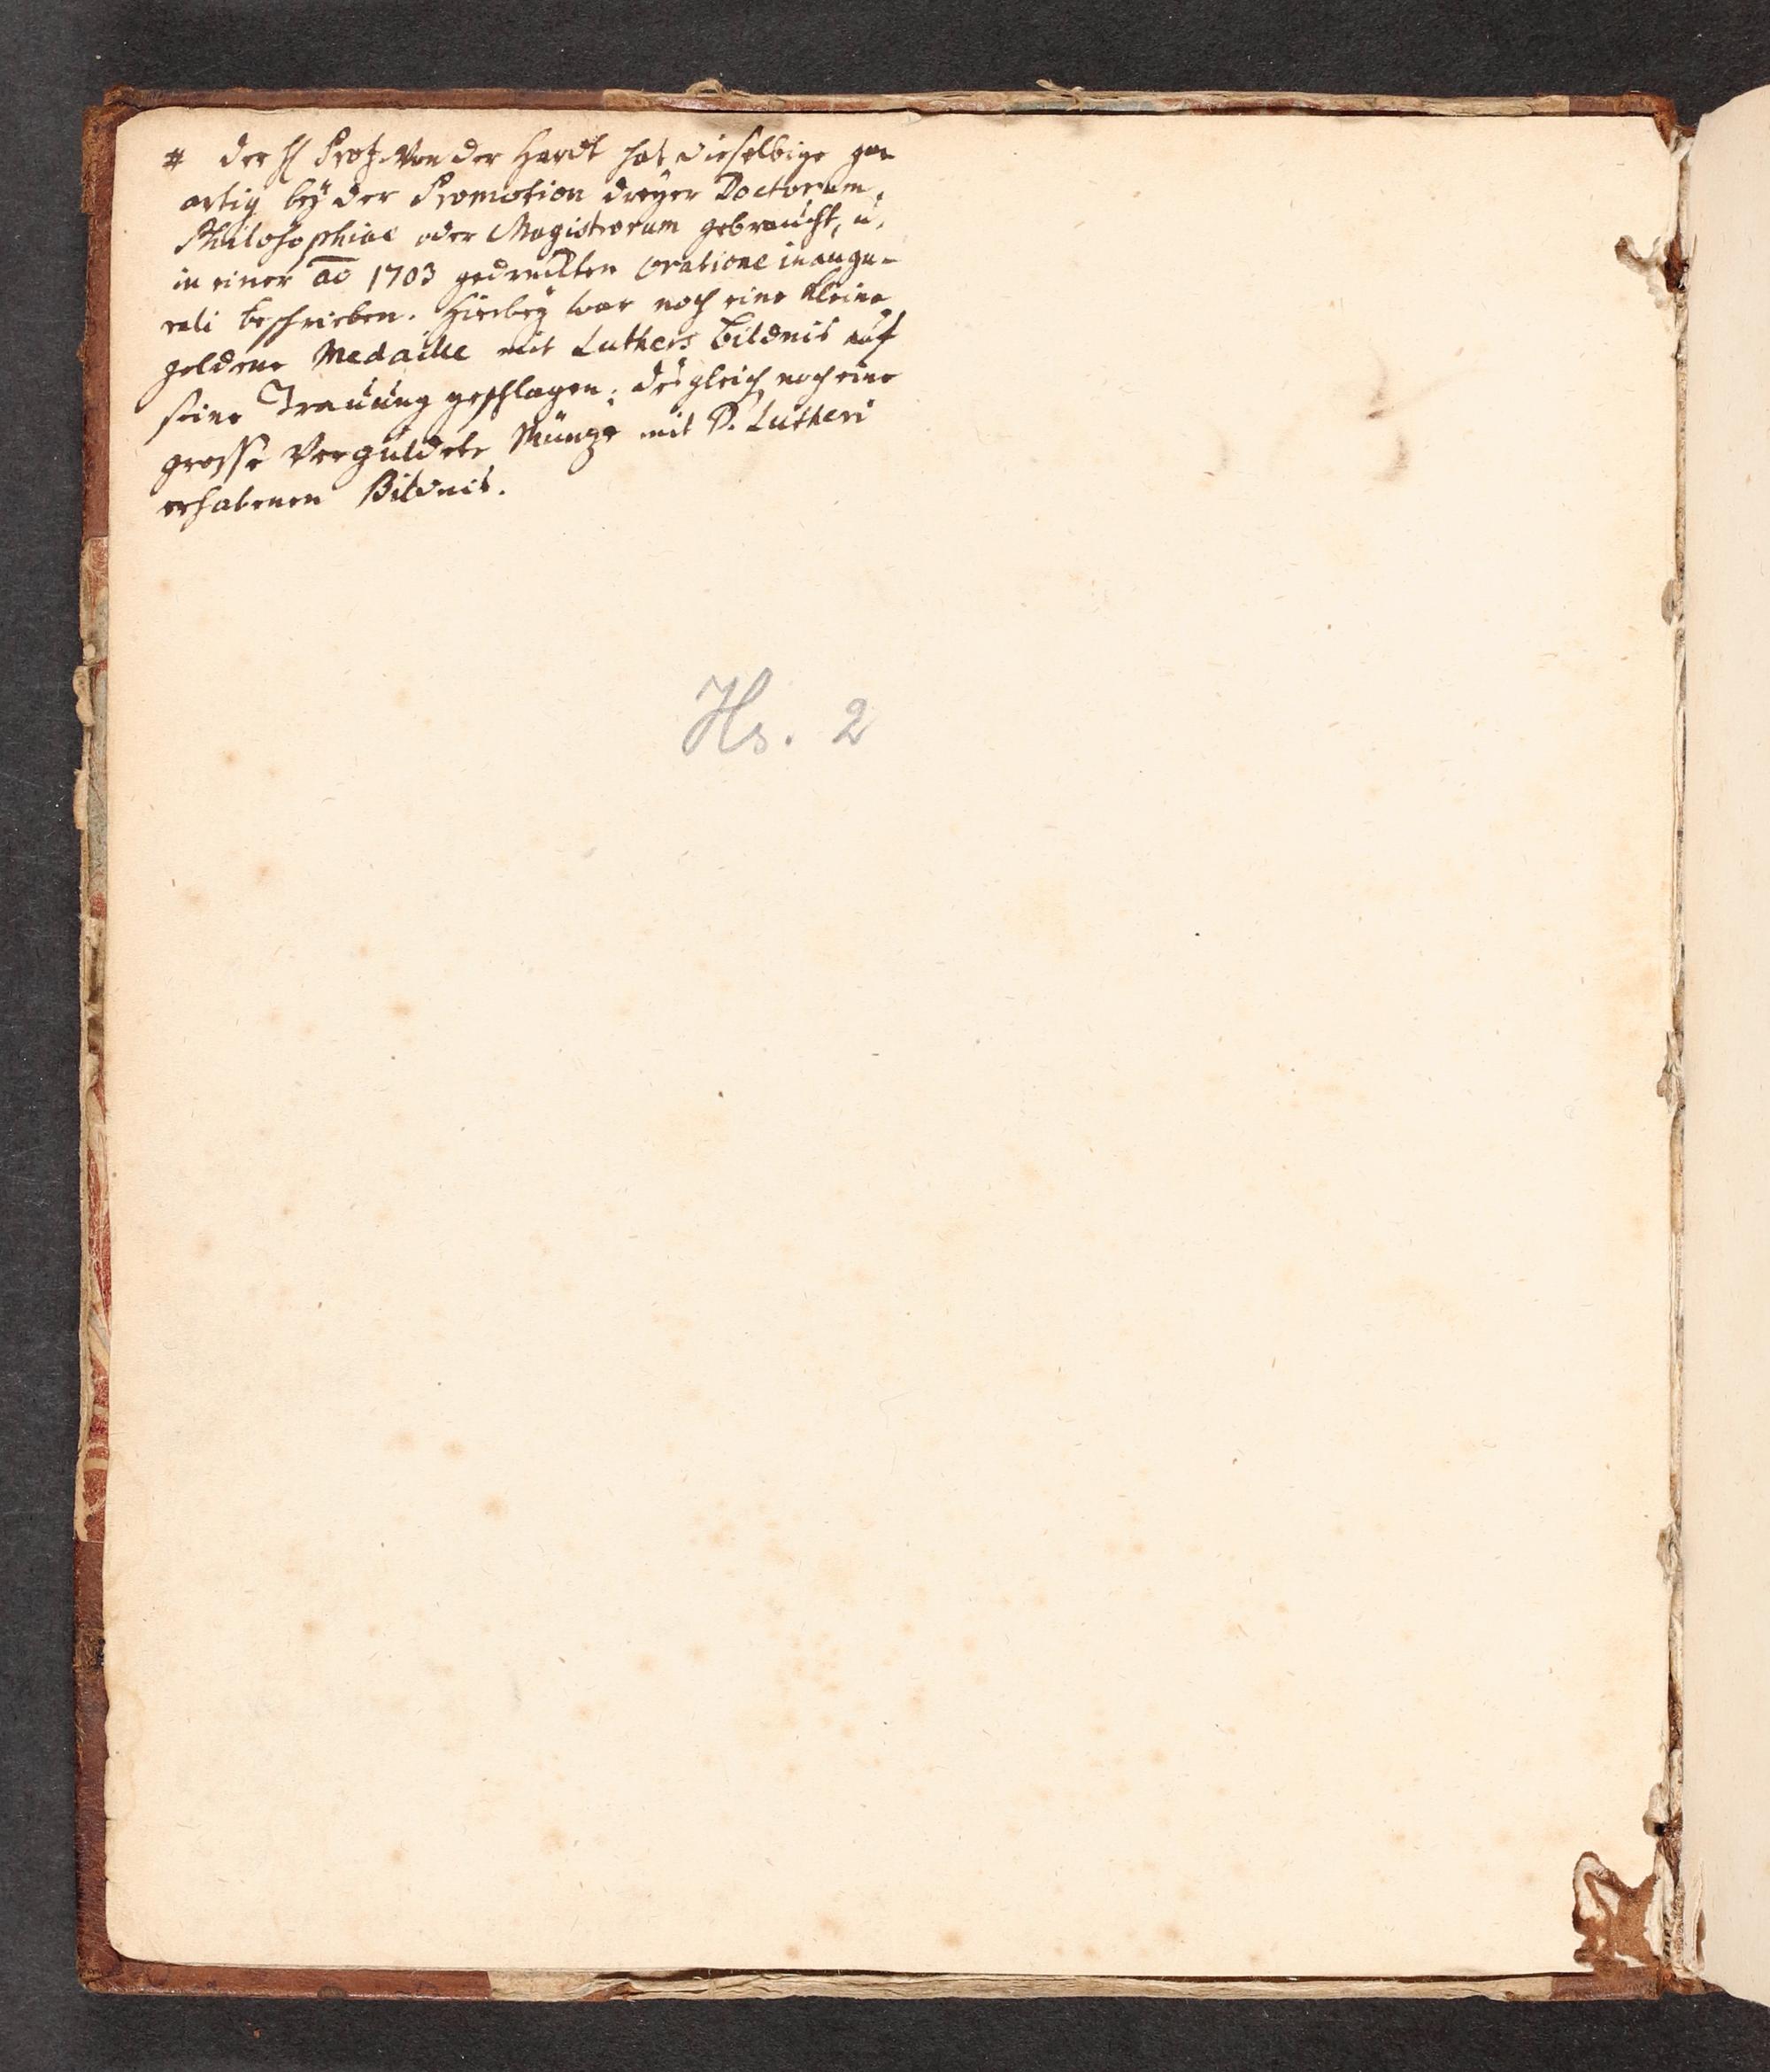 # der H Prof. Von der Hardt hat dieselbige gar
artig bey der Promotion dreyer Doctorum
Philosophiae oder Magistrorum gebraucht, u.
in einer ao 1703 gedruckten Oratione inaugu-
rali beschrieben. Hierbey war noch eine kleine
goldene Medaille mit Luthers bildnis auf
seine Trauung geschlagen; desgleich noch eine
grosse Vergüldete Müntze mit D. Lutheri
erhabenen Bildnis.
Hs. 2